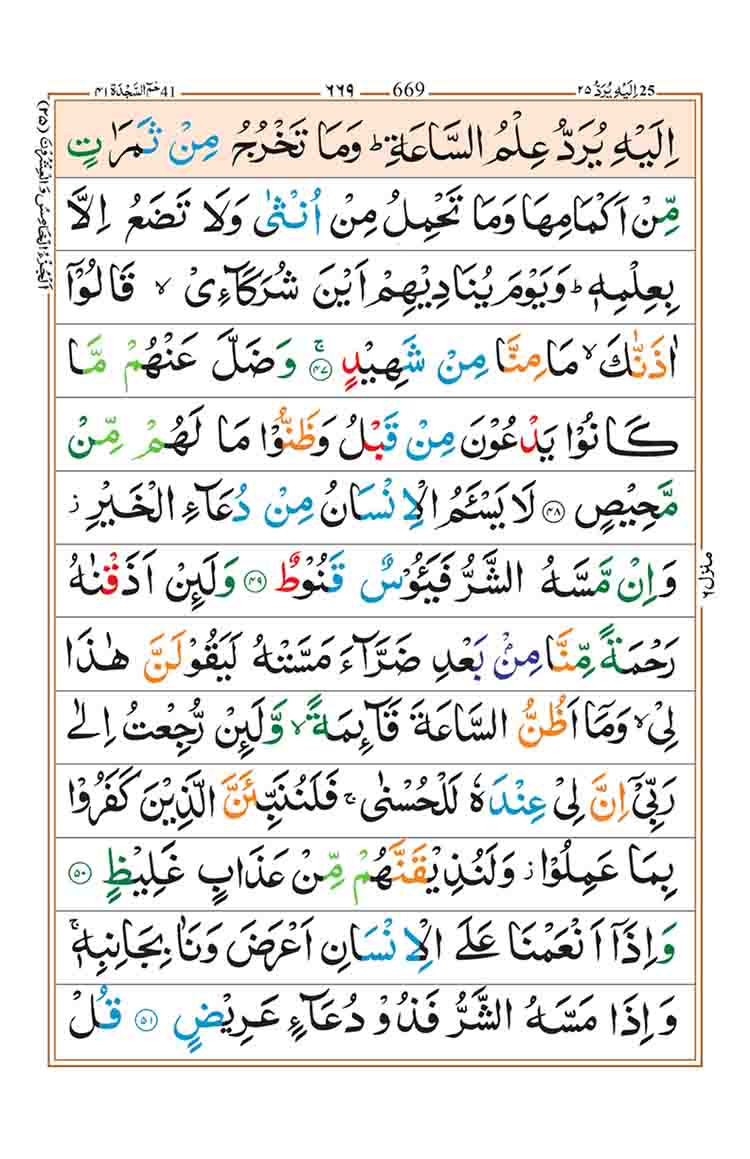 حٰمٓ السَّجْدَة ٤١ 41
٦٦٩ 669
اِلَیْہِ یُرَدُّ ٢٥ 25
اِلَیْهِ یُرَدُّ عِلْمُ السَّاعَةِ ؕ وَمَا تَخْرُجُ مِنْ ثَمَرٰتٍ
مِّنْ اَكْمَامِهَا وَمَا تَحْمِلُ مِنْ اُنْثٰی وَلَا تَضَعُ اِلَّا
بِعِلْمِهٖ ؕ وَیَوْمَ یُنَادِیْهِمْ اَیْنَ شُرَكَآءِیْ ۙ قَالُوْۤا
اٰذَنّٰكَ ۙ مَا مِنَّا مِنْ شَهِیْدٍ ۚ‏﴿۴۷﴾ وَضَلَّ عَنْهُمْ مَّا
كَانُوْا یَدْعُوْنَ مِنْ قَبْلُ وَظَنُّوْا مَا لَهُمْ مِّنْ
مَّحِیْصٍ ﴿۴۸﴾ لَا یَسْـَٔمُ الْاِنْسَانُ مِنْ دُعَآءِ الْخَیْرِ ز
وَاِنْ مَّسَّهُ الشَّرُّ فَیَـُٔوْسٌ قَنُوْطٌ ﴿۴۹﴾ وَلَىِٕنْ اَذَقْنٰهُ
رَحْمَةً مِّنَّا مِنْۢ بَعْدِ ضَرَّآءَ مَسَّتْهُ لَیَقُوْلَنَّ هٰذَا
لِیْ ۙ وَمَاۤ اَظُنُّ السَّاعَةَ قَآىِٕمَةً ۙ وَّلَىِٕنْ رُّجِعْتُ اِلٰی
رَبِّیْۤ اِنَّ لِیْ عِنْدَهٗ لَلْحُسْنٰی ۚ فَلَنُنَبِّئَنَّ الَّذِیْنَ كَفَرُوْا
بِمَا عَمِلُوْا ز وَلَنُذِیْقَنَّهُمْ مِّنْ عَذَابٍ غَلِیْظٍ ﴿۵۰﴾
وَاِذَاۤ اَنْعَمْنَا عَلَی الْاِنْسَانِ اَعْرَضَ وَنَاٰ بِجَانِبِهٖ ۚ
وَاِذَا مَسَّهُ الشَّرُّ فَذُوْ دُعَآءٍ عَرِیْضٍ ﴿۵۱﴾ قُلْ
اَلْجُزْءُ الْخَامِسُ وَالْعِشْرُوْنَ (٢٥)
منزل ٦